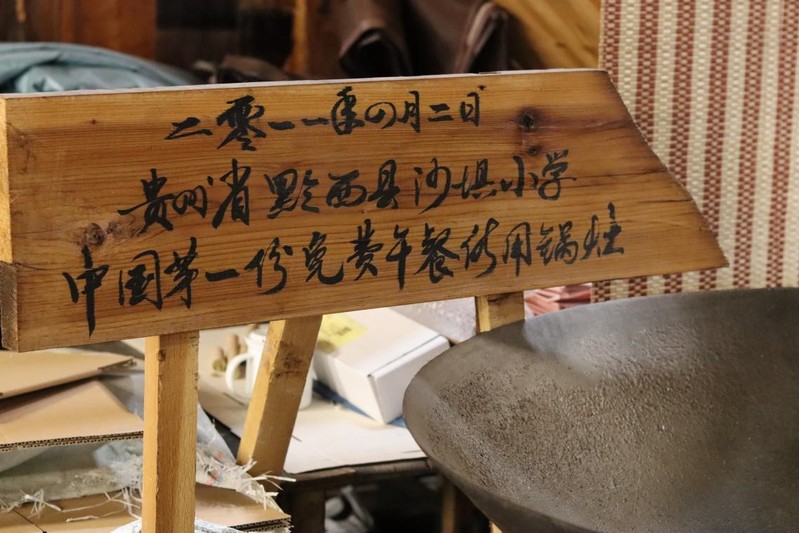 二零一一年四月二日
贵州省黔西县沙坝小学
中国第一份免费午餐使用锅灶